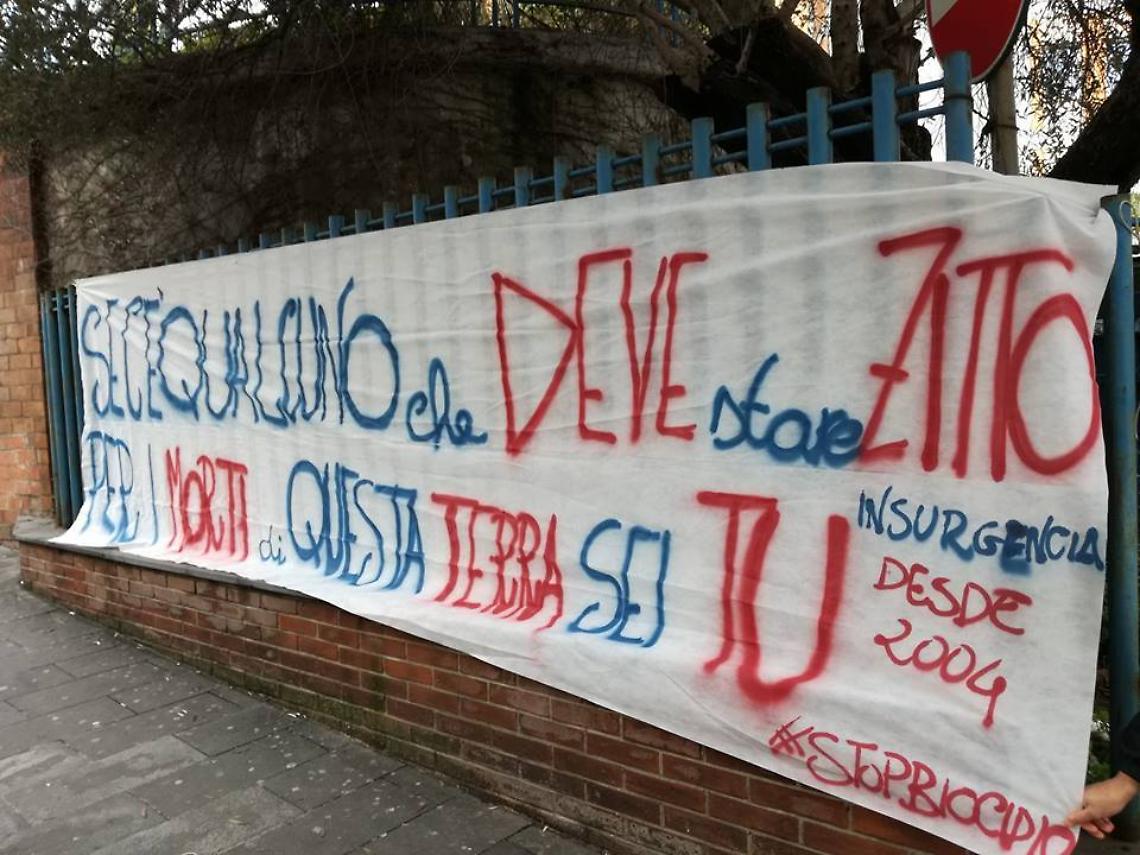 SE C'È QUALCUNO che DEVE stare ZITTO
PER I MORTI di QUESTA TERRA SEI TU
INSURGENCIA
DESDE
2004
#STOPBIOCIDIO